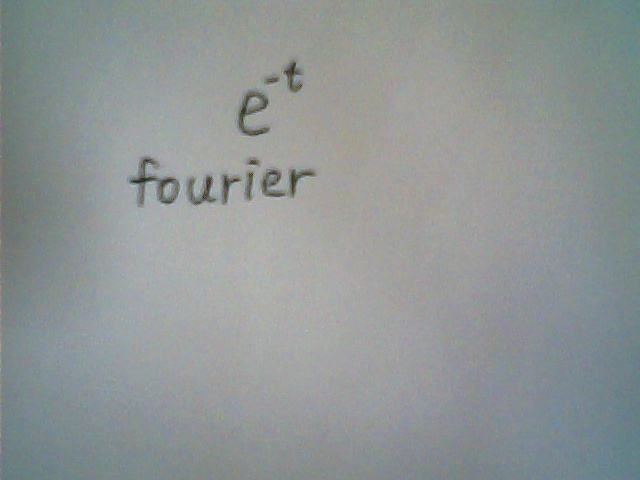 e^-t
fourier